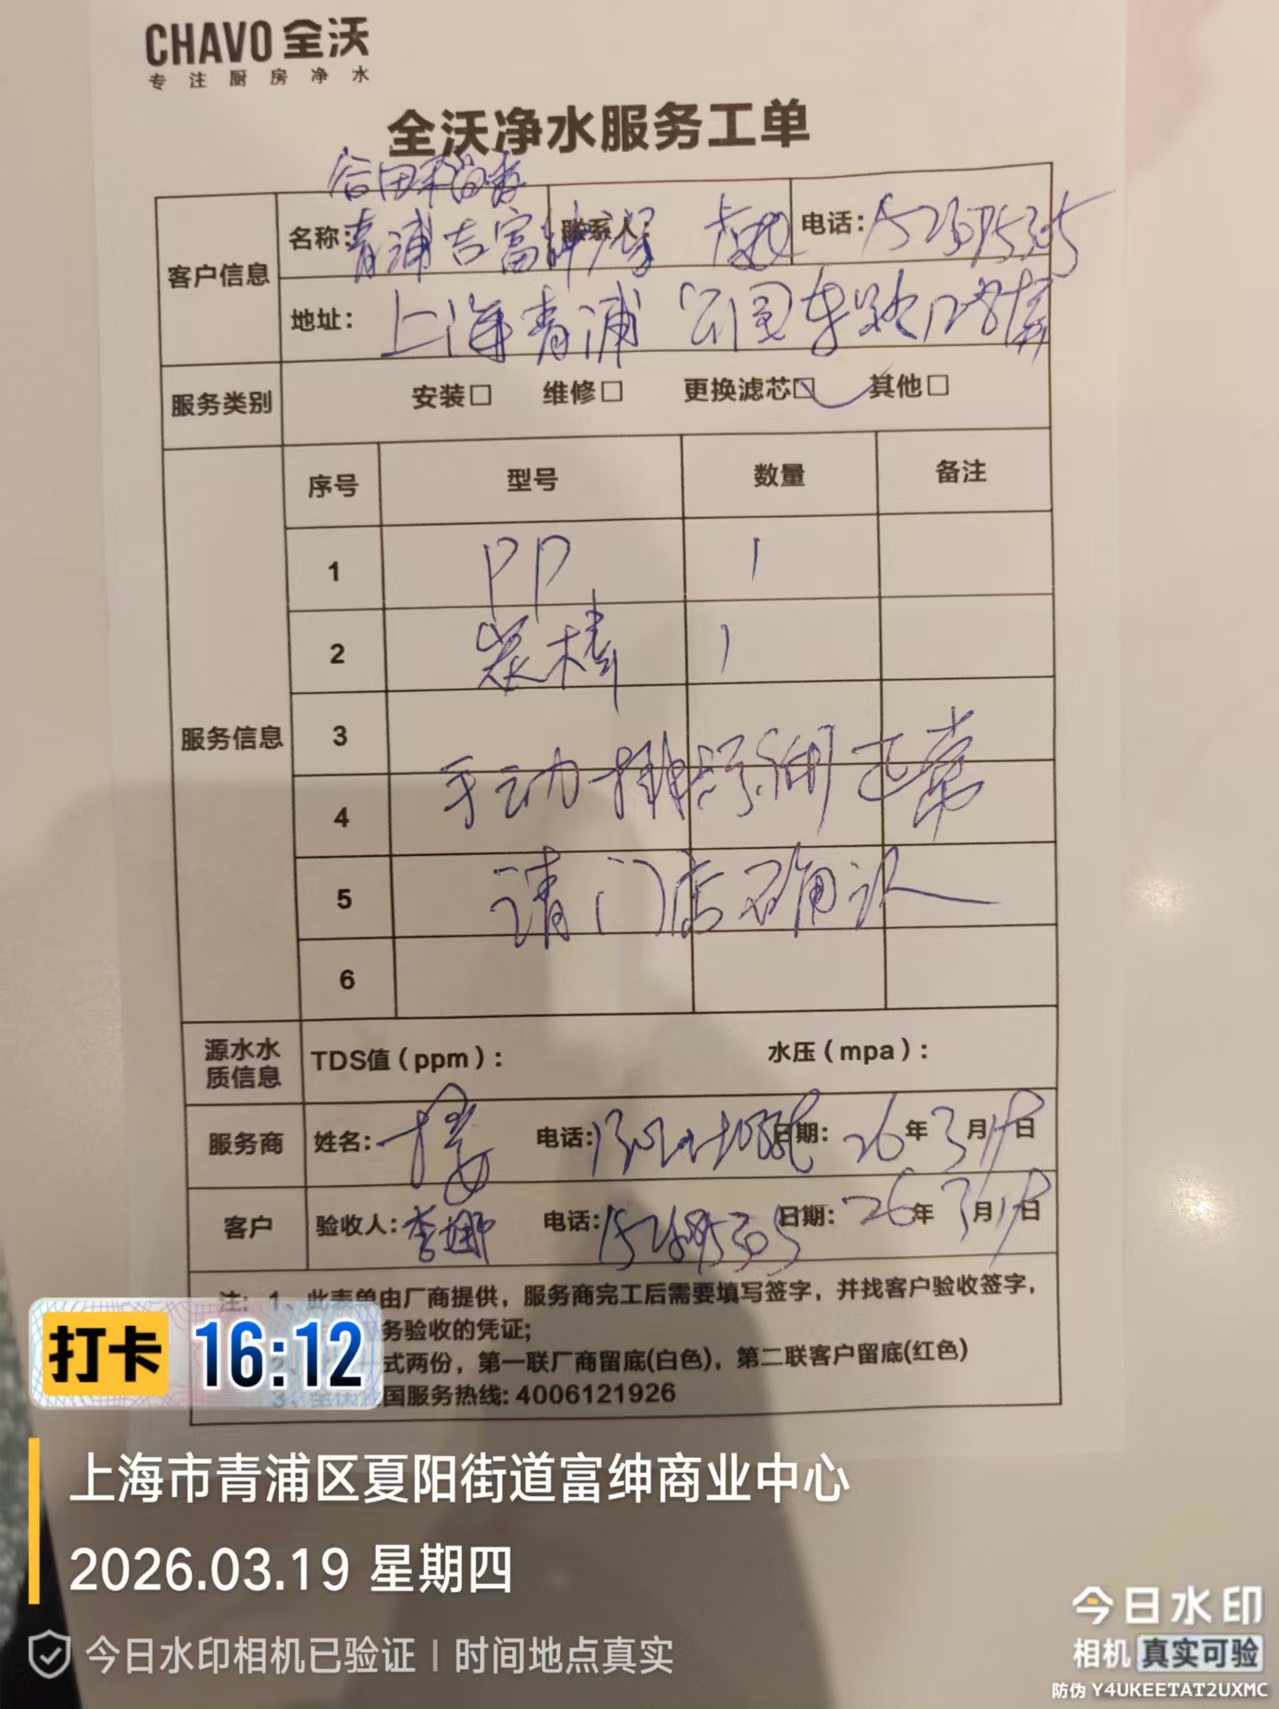 CHAVO 全沃
专注厨房净水
全沃净水服务工单
谷田稻香
客户信息 名称: 青浦吉富绅广场 联系人: 电话:
地址: 上海青浦公园东路
服务类别 安装□ 维修□ 更换滤芯□ 其他□
服务信息 序号 型号 数量 备注
1 PP 1
2 炭棒 1
3
手动排 正常
4
5 请门店确认
6
源水水质信息 TDS值（ppm）: 水压（mpa）:
服务商 姓名: 电话: 日期: 26年3月19日
客户 验收人: 李娜 电话: 日期: 26年3月19日
注: 1、此表单由厂商提供，服务商完工后需要填写签字，并找客户验收签字，
务验收的凭证;
一式两份，第一联厂商留底(白色)，第二联客户留底(红色)
国服务热线: 4006121926
打卡 16:12
上海市青浦区夏阳街道富绅商业中心
2026.03.19 星期四
今日水印相机已验证 | 时间地点真实
今日水印
相机 真实可验
防伪 Y4UKEETAT2UXMC